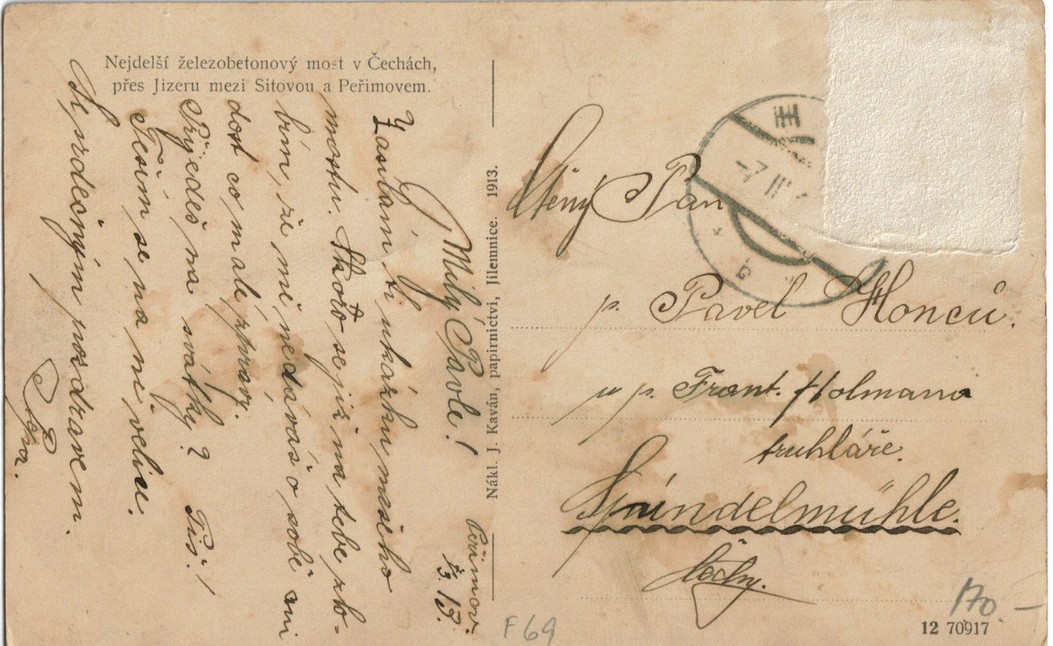 Nejdelší železobetonový most v Čechách,
přes Jizeru mezi Sitovou a Peřimovem.
Peřimov
13.
Milý Pavle!
Zasílám ti ukázku našeho
mostu. Skoro se již na tebe zlo-
bím, že mi nedáváš o sobě ani
dost co malé zprávy.
Přijedeš na svátky? Piš!
Těším se na ni velice.
Se srdečným pozdravem
Pepa.
Nákl. J. Kaván, papírnictví, Jilemnice. 1913.
-7 III
b
Ctěný Pan
p. Pavel Honců.
u p. Frant. Holmana
truhláře.
Spindelmühle.
Čechy.
170.–
12 70917
F69